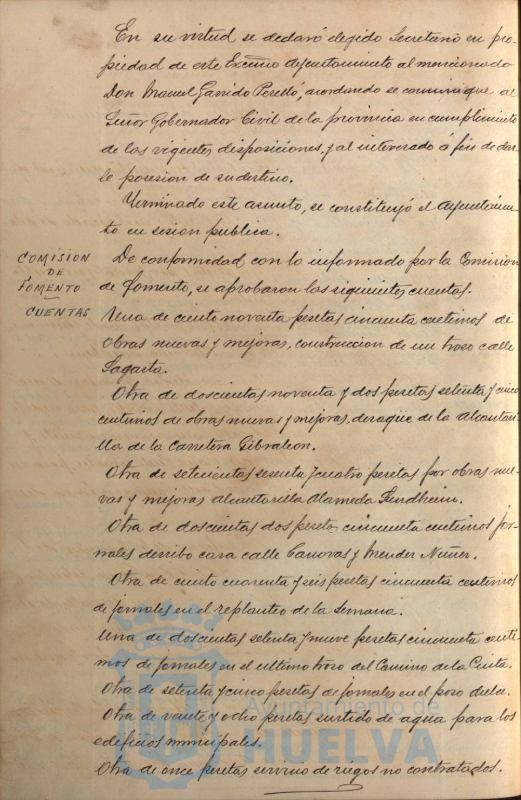 En su virtud se declaró elegido Secretario en pro-
piedad de este Excmo Ayuntamiento al mencionado
Don Manuel Garrido Perelló, acordando se comunique al
Señor Gobernador Civil de la provincia en cumplimiento
de las vigentes disposiciones, y al interesado á fin de dar-
le posesion de su destino.
Terminado este asunto, se constituyó el Ayuntamien-
to en sesion publica.
COMISION
DE
FOMENTO
CUENTAS
De conformidad con lo informado por la Comision
de Fomento, se aprobaron las siguientes cuentas.
Una de ciento noventa pesetas cincuenta centimos de
obras nuevas y mejoras, construccion de un trozo calle
Sagasta.
Otra de doscientas noventa y dos pesetas setenta y cinco
centimos de obras nuevas y mejoras, desagüe de la alcantari-
lla de la Carretera Gibraleon.
Otra de setecientas sesenta y cuatro pesetas por obras nue-
vas y mejoras alcantarilla Alameda Sundheim.
Otra de doscientas dos pesetas cincuenta centimos jor-
nales derribo casa calle Canovas y Mendez Nuñez.
Otra de ciento cuarenta y seis pesetas cincuenta centimos
de jornales en el replanteo de la Semana.
Una de doscientas setenta y nueve pesetas cincuenta centi-
mos de jornales en el ultimo trozo del Camino de la Cinta.
Otra de setenta y cinco pesetas de jornales en el pozo
Otra de veinte y ocho pesetas surtido de agua para los
edificios municipales.
Otra de once pesetas servicio de riegos no contratados.
Ayuntamiento de
HUELVA